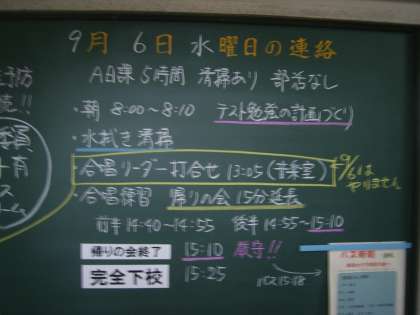 9月 6日 水曜日の連絡
A日課 5時間 清掃あり 部活なし
・朝 8:00～8:10 テスト勉強の計画づくり
・水拭き清掃
・合唱リーダー打合せ 13:05(音楽室)
9/6は
やりません
・合唱練習 帰りの会 15分延長
前半 14:40～14:55 後半 14:55～15:10
帰りの会終了 15:10 厳守!!
完全下校 15:25
バス15:18
予防